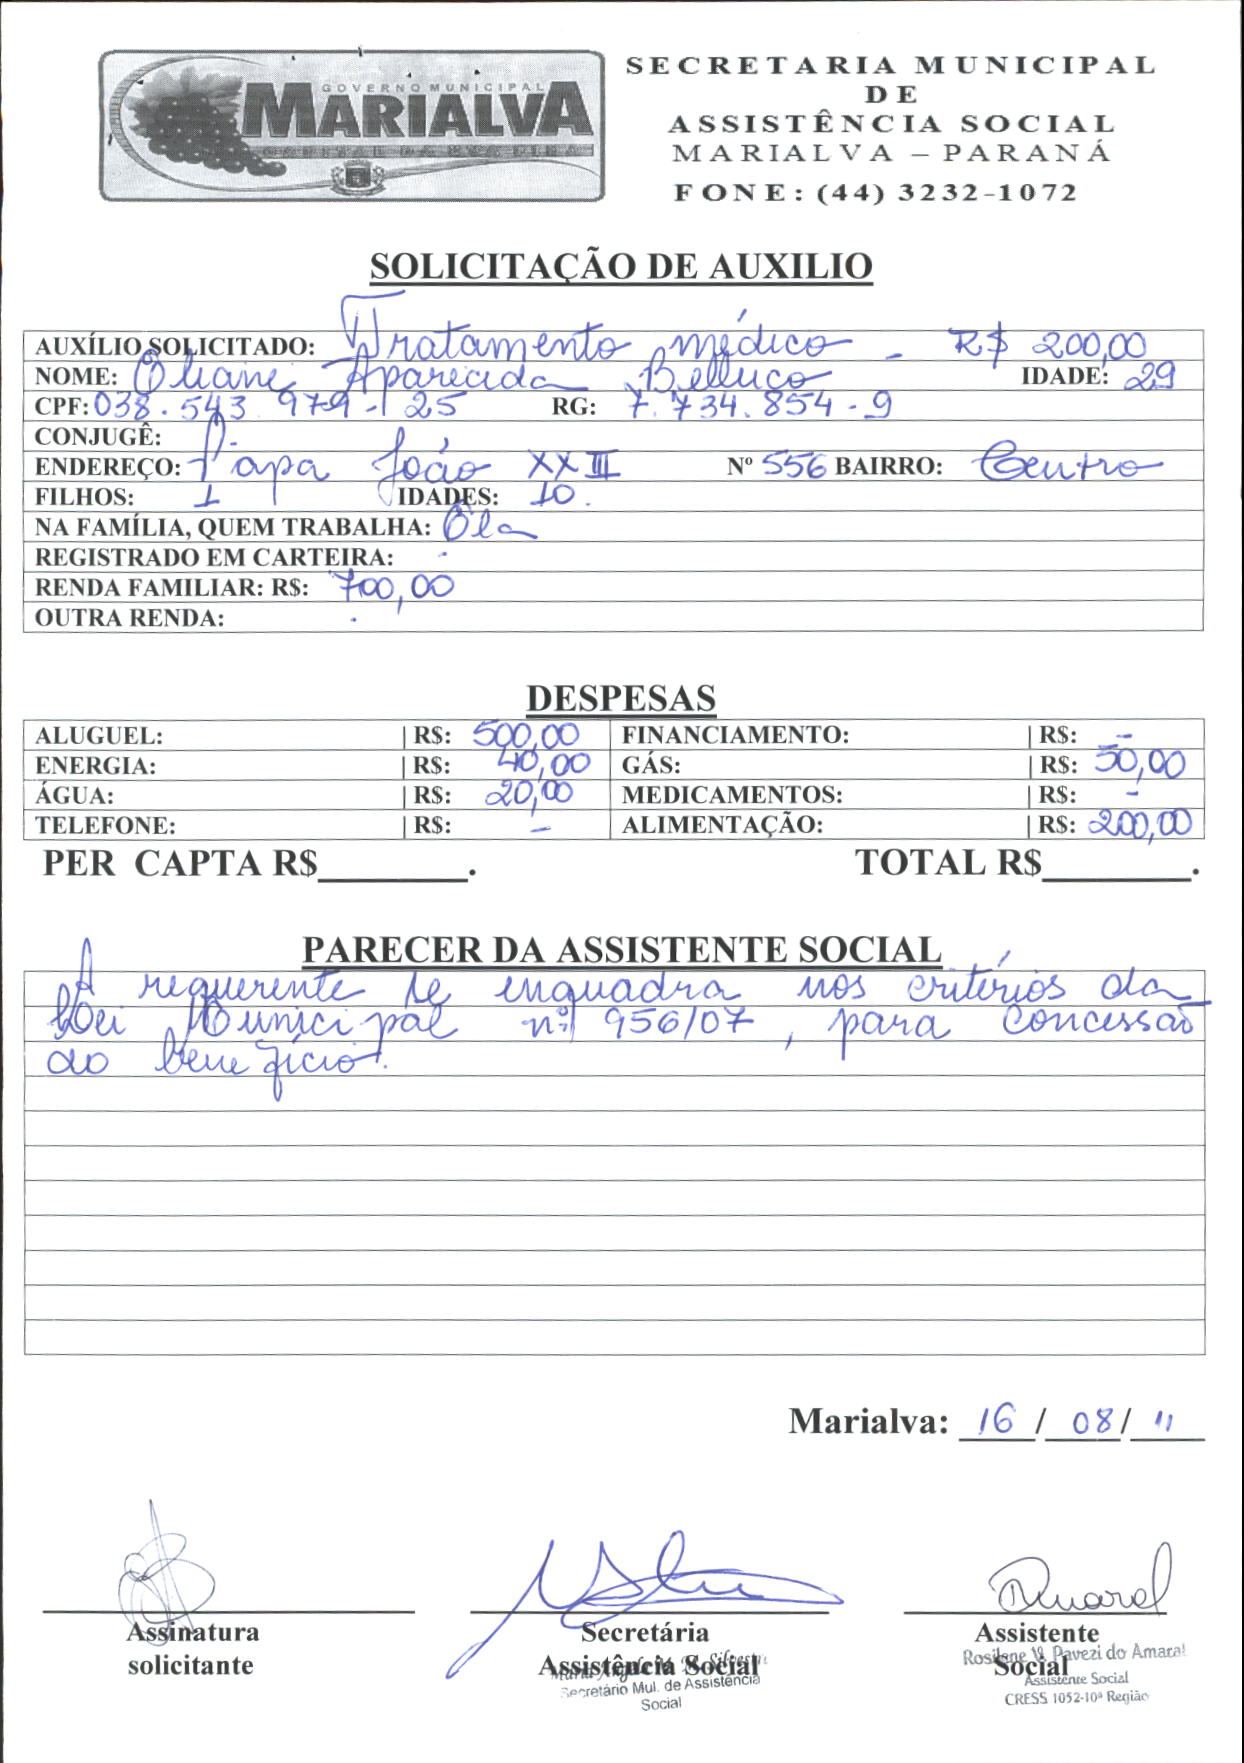 GOVERNO MUNICIPAL
MARIALVA
CAPITAL DA UVA FINA
SECRETARIA MUNICIPAL
DE
ASSISTÊNCIA SOCIAL
MARIALVA – PARANÁ
FONE: (44) 3232-1072
SOLICITAÇÃO DE AUXILIO
AUXÍLIO SOLICITADO: Tratamento médico - R$ 200,00
NOME: Aparecida Belluco IDADE: 29
CPF: 038.543.979-25 RG: 7.734.854-9
CONJUGÊ: -
ENDEREÇO: Papa João XXIII Nº 556 BAIRRO: Centro
FILHOS: 1 IDADES: 10.
NA FAMÍLIA, QUEM TRABALHA: Ela
REGISTRADO EM CARTEIRA: -
RENDA FAMILIAR: R$: 700,00
OUTRA RENDA: -
DESPESAS
ALUGUEL: | R$: 500,00 FINANCIAMENTO: | R$: -
ENERGIA: | R$: 40,00 GÁS: | R$: 50,00
ÁGUA: | R$: 20,00 MEDICAMENTOS: | R$: -
TELEFONE: | R$: - ALIMENTAÇÃO: | R$: 200,00
PER CAPTA R$________. TOTAL R$________.
PARECER DA ASSISTENTE SOCIAL
A requerente se enquadra nos critérios da
Lei Municipal nº 956/07, para concessão
do benefício.
Marialva: 16 / 08 / 11
Amaral
Assinatura solicitante
Secretária Assistência Social
Assistente Social
Secretário Mul. de Assistência
Social
Rosilene V. Pavezi do Amaral
Assistente Social
CRESS 1052-10ª Região